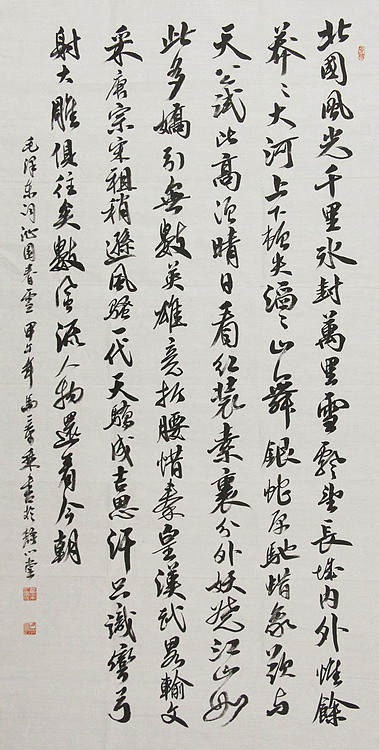 北國風光千里冰封萬里雪飄望長城内外惟餘
莽〻大河上下頓失滔〻山舞銀蛇原馳蜡象欲与
天公試比高須晴日看红装素裹分外妖娆江山如
此多嬌引無數英雄竞折腰惜秦皇漢武畧輸文
采唐宗宋祖稍遜風騷一代天驕成吉思汗只識彎弓
射大雕俱往矣數风流人物還看今朝
毛泽东词沁园春雪甲午年書於心堂